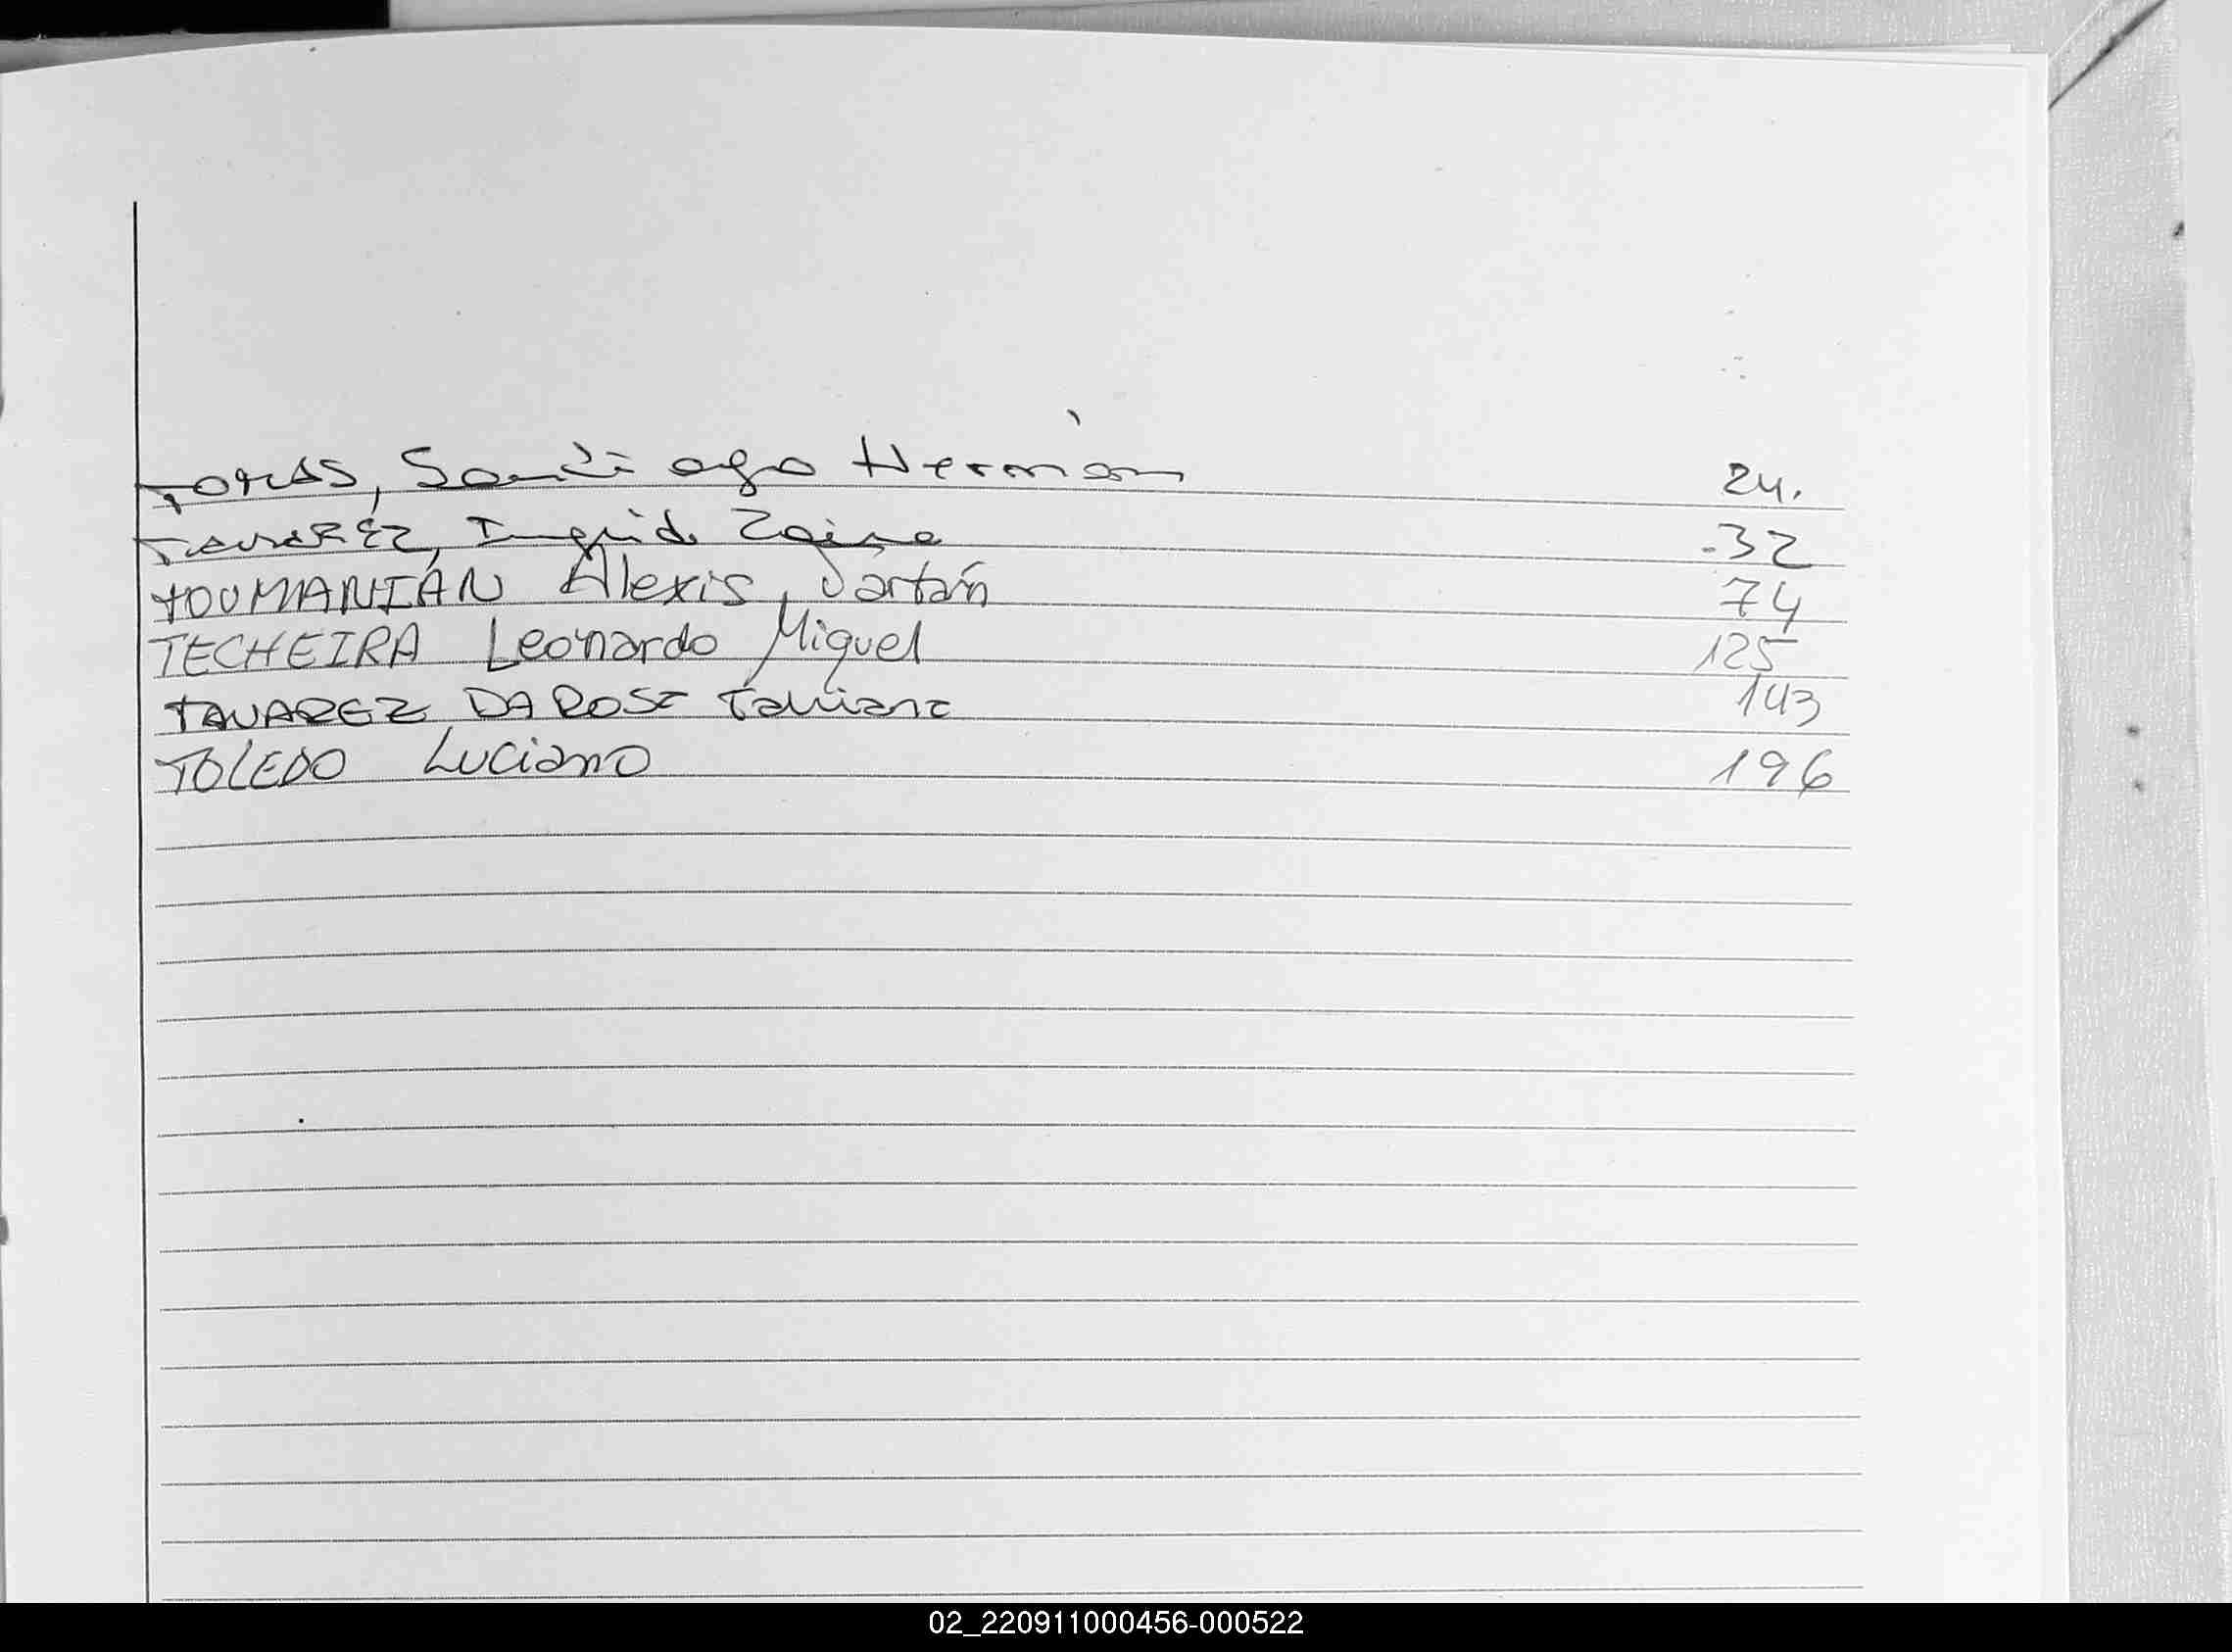 TOMAS, Santiago Hernán 24.
TAVAREZ, Ingrid Zaira 32
TOUMANIÁN Alexis, Vartán 74
TECHEIRA Leonardo Miguel 125
TAVAREZ DA ROSA Tatiana 143
TOLEDO Luciano 196
02_220911000456-000522